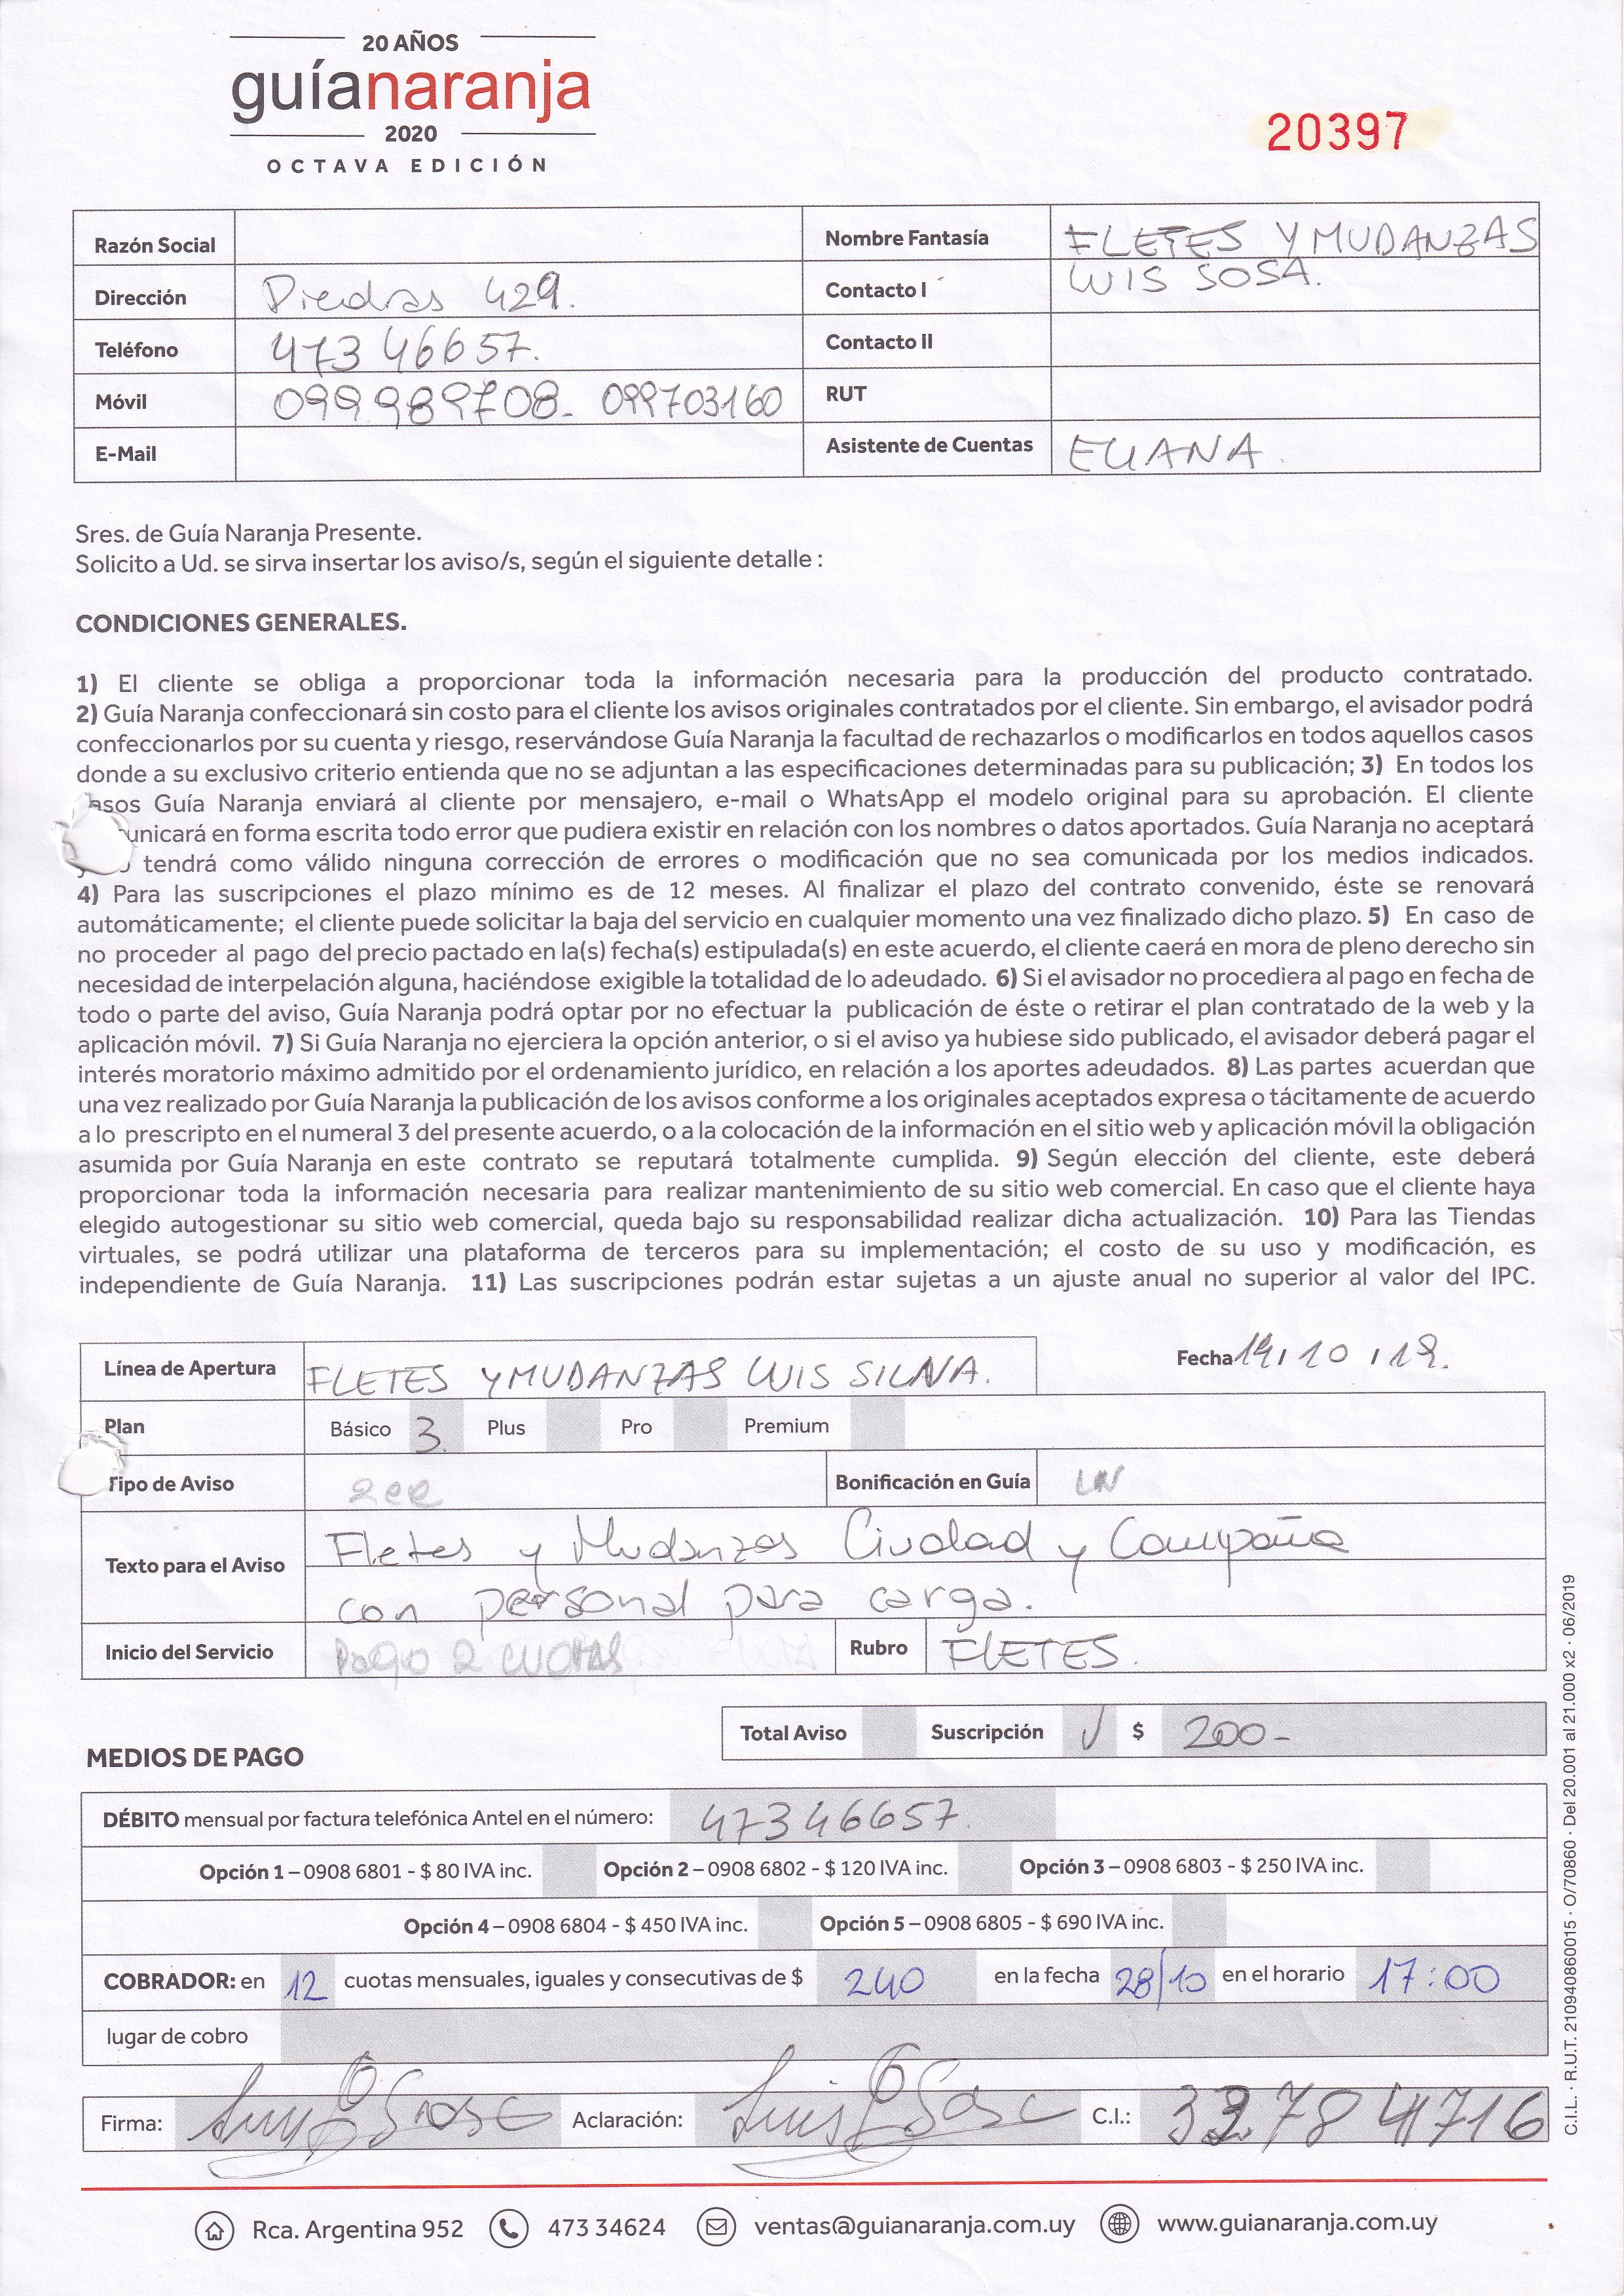 20 AÑOS
guíanaranja
2020
OCTAVA EDICIÓN
20397
Razón Social
Nombre Fantasía FLETES Y MUDANZAS
Dirección Piedras 429.
Contacto I LUIS SOSA.
Teléfono 473 46657.
Contacto II
Móvil 099989708. 099703160
RUT
E-Mail
Asistente de Cuentas ELIANA.
Sres. de Guía Naranja Presente.
Solicito a Ud. se sirva insertar los aviso/s, según el siguiente detalle :
CONDICIONES GENERALES.
1) El cliente se obliga a proporcionar toda la información necesaria para la producción del producto contratado.
2) Guía Naranja confeccionará sin costo para el cliente los avisos originales contratados por el cliente. Sin embargo, el avisador podrá
confeccionarlos por su cuenta y riesgo, reservándose Guía Naranja la facultad de rechazarlos o modificarlos en todos aquellos casos
donde a su exclusivo criterio entienda que no se adjuntan a las especificaciones determinadas para su publicación; 3) En todos los
asos Guía Naranja enviará al cliente por mensajero, e-mail o WhatsApp el modelo original para su aprobación. El cliente
unicará en forma escrita todo error que pudiera existir en relación con los nombres o datos aportados. Guía Naranja no aceptará
tendrá como válido ninguna corrección de errores o modificación que no sea comunicada por los medios indicados.
4) Para las suscripciones el plazo mínimo es de 12 meses. Al finalizar el plazo del contrato convenido, éste se renovará
automáticamente; el cliente puede solicitar la baja del servicio en cualquier momento una vez finalizado dicho plazo. 5) En caso de
no proceder al pago del precio pactado en la(s) fecha(s) estipulada(s) en este acuerdo, el cliente caerá en mora de pleno derecho sin
necesidad de interpelación alguna, haciéndose exigible la totalidad de lo adeudado. 6) Si el avisador no procediera al pago en fecha de
todo o parte del aviso, Guía Naranja podrá optar por no efectuar la publicación de éste o retirar el plan contratado de la web y la
aplicación móvil. 7) Si Guía Naranja no ejerciera la opción anterior, o si el aviso ya hubiese sido publicado, el avisador deberá pagar el
interés moratorio máximo admitido por el ordenamiento jurídico, en relación a los aportes adeudados. 8) Las partes acuerdan que
una vez realizado por Guía Naranja la publicación de los avisos conforme a los originales aceptados expresa o tácitamente de acuerdo
a lo prescripto en el numeral 3 del presente acuerdo, o a la colocación de la información en el sitio web y aplicación móvil la obligación
asumida por Guía Naranja en este contrato se reputará totalmente cumplida. 9) Según elección del cliente, este deberá
proporcionar toda la información necesaria para realizar mantenimiento de su sitio web comercial. En caso que el cliente haya
elegido autogestionar su sitio web comercial, queda bajo su responsabilidad realizar dicha actualización. 10) Para las Tiendas
virtuales, se podrá utilizar una plataforma de terceros para su implementación; el costo de su uso y modificación, es
independiente de Guía Naranja. 11) Las suscripciones podrán estar sujetas a un ajuste anual no superior al valor del IPC.
Línea de Apertura FLETES Y MUDANZAS LUIS SILVA.
Fecha 14/10/19.
Plan Básico 3. Plus Pro Premium
Tipo de Aviso
Bonificación en Guía LN
Texto para el Aviso
Fletes y Mudanzas Ciudad y Campaña
con personal para carga.
Inicio del Servicio Pago 2 CUOTAS
Rubro FLETES.
Total Aviso Suscripción ✓ $ 200-
MEDIOS DE PAGO
DÉBITO mensual por factura telefónica Antel en el número: 47346657.
Opción 1 – 0908 6801 - $ 80 IVA inc. Opción 2 – 0908 6802 - $ 120 IVA inc. Opción 3 – 0908 6803 - $ 250 IVA inc.
Opción 4 – 0908 6804 - $ 450 IVA inc. Opción 5 – 0908 6805 - $ 690 IVA inc.
COBRADOR: en 12 cuotas mensuales, iguales y consecutivas de $ 240 en la fecha 28/10 en el horario 17:00
lugar de cobro
Firma: Aclaración: Luis Sosa C.I.:
Rca. Argentina 952 473 34624 ventas@guianaranja.com.uy www.guianaranja.com.uy
C.I.L. · R.U.T. 210940860015 · O/70860 · Del 20.001 al 21.000 x2 · 06/2019